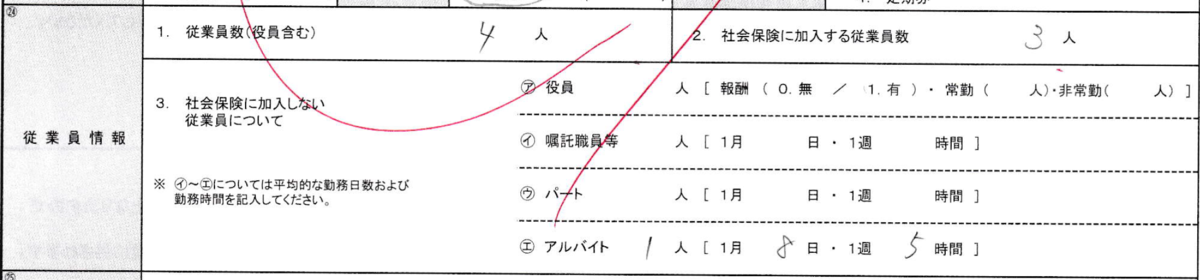 ㉔
1. 従業員数(役員含む) 4 人
2. 社会保険に加入する従業員数 3 人
従業員情報
3. 社会保険に加入しない
従業員について
※ ㋑~㋓については平均的な勤務日数および
勤務時間を記入してください。
㋐ 役員 人 [ 報酬 ( 0. 無 / 1. 有 )・ 常勤 ( 人)・非常勤( 人) ]
㋑ 嘱託職員等 人 [ 1月 日 ・ 1週 時間 ]
㋒ パート 人 [ 1月 日 ・ 1週 時間 ]
㋓ アルバイト 1 人 [ 1月 8 日 ・ 1週 5 時間 ]
㉕